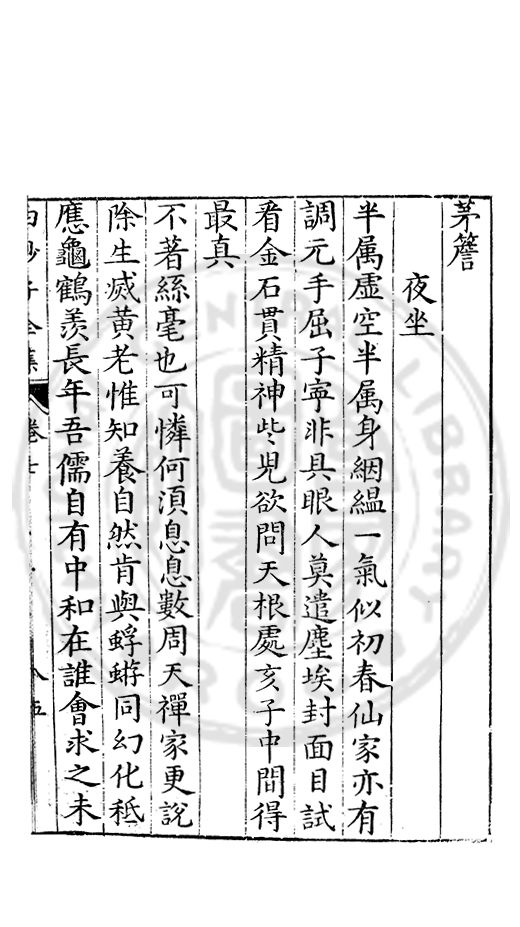 茅簷
夜坐
半属虛空半属身絪縕一氣似初春仙家亦有
調元手屈子寧非具眼人莫遣塵埃封面目試
看金石貫精神些兒欲問天根處亥子中間得
最真
不著絲毫也可憐何須息息數周天禪家更說
除生滅黄老惟知養自然肯與蜉蝣同幻化秪
應龜鶴羨長年吾儒自有中和在誰會求之未